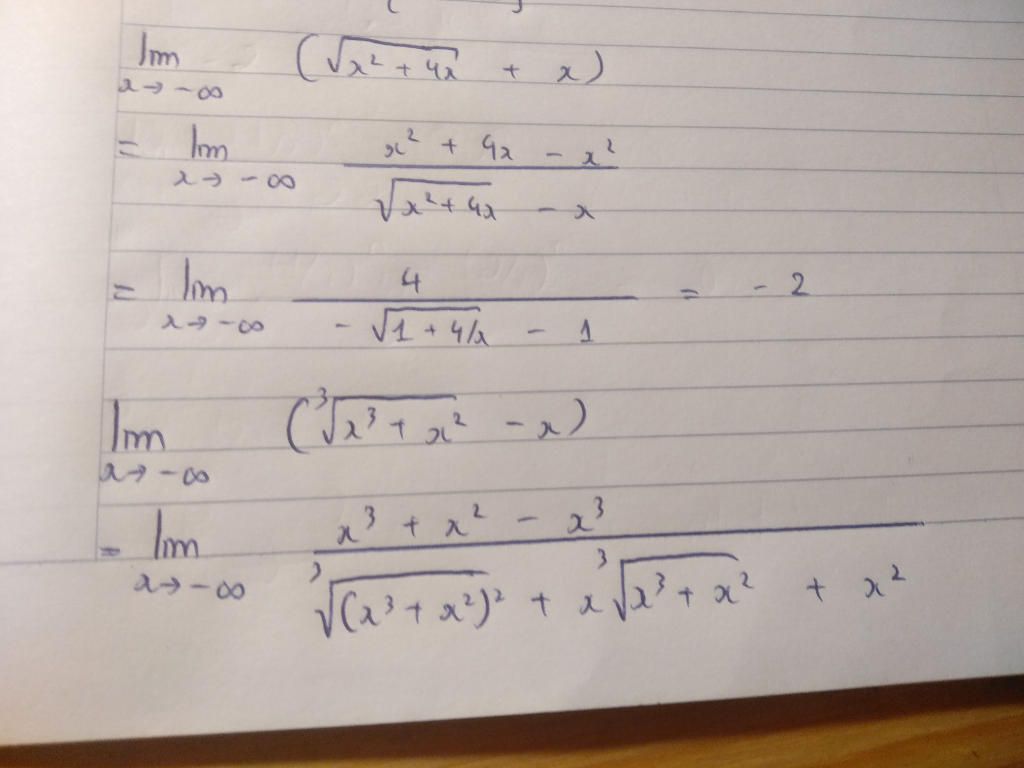 lim x→-∞ (√(x² + 4x) + x)
= lim x→-∞ (x² + 4x - x²) / (√(x² + 4x) - x)
= lim x→-∞ 4 / (-√(1 + 4/x) - 1) = -2
lim x→-∞ (³√(x³ + x²) - x)
= lim x→-∞ (x³ + x² - x³) / (³√((x³ + x²)²) + x ³√(x³ + x²) + x²)